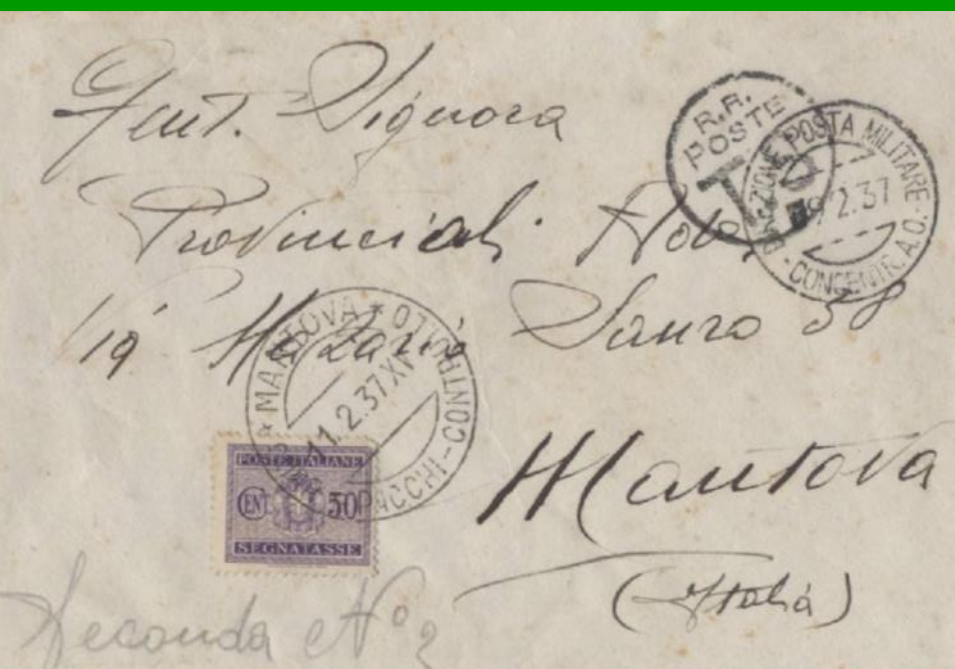 Gent. Signora
Provinciali Ada
Via Nazario Sauro 38
Mantova
(Italia)
Seconda N° 2
R.R. POSTE
T.
DIREZIONE POSTA MILITARE - CONCENTR. A.O.
2.37
MANTOVA
PACCHI - CONTRIBUTO
11.2.37.XV
POSTE ITALIANE
CENT 50
SEGNATASSE